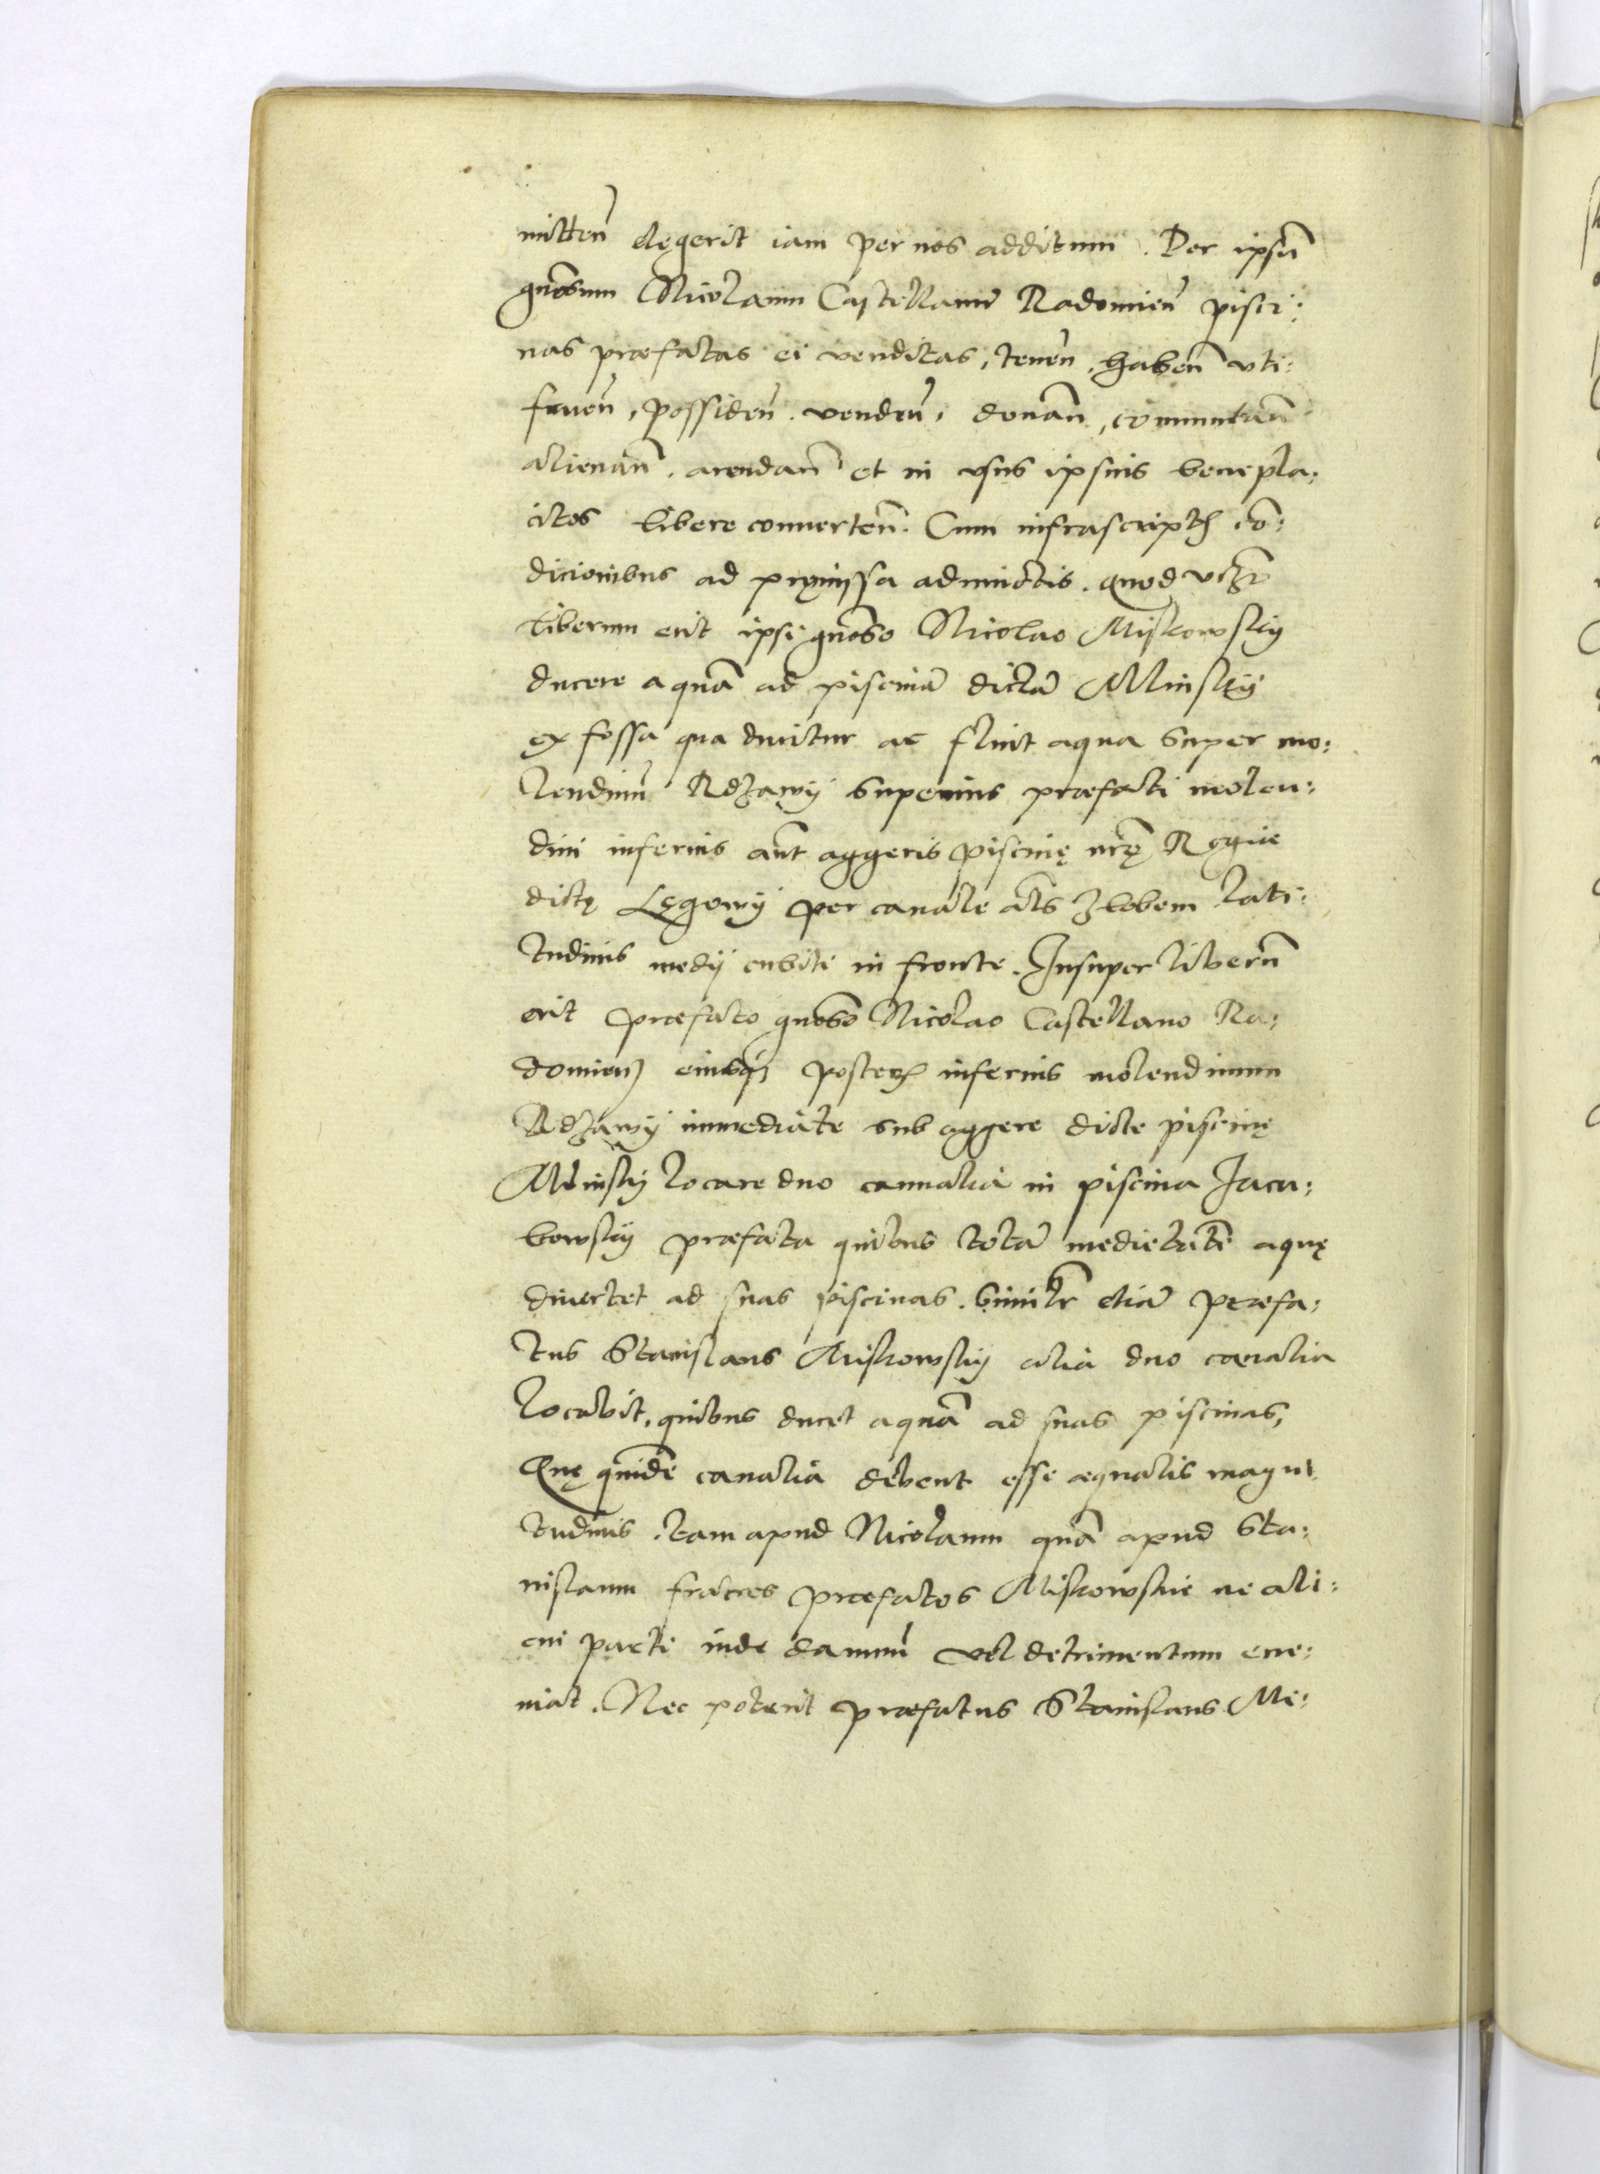 mitten̄ elegerit iam per nos additum. Per ipsū
gn̄osum Nicolaum Castellanū Radomien̄ pisci:
nas præfatas ei venditas, tenen̄, haben̄ vti:
fruen̄, possiden̄. venden̄, donan̄, comutan̄
alienan̄. arendan̄ et in vsus ipsius benepla:
citos libere conuerten̄. Cum infrascriptis cō:
dicionibus ad pręmissa adiunctis. quod
liberum erit ipsi gn̄oso Nicolao Miskowsky
ducere aquā ad piscinā dictā Mlinsky
ex fossa qua ducitur ac fluit aqua super mo:
lendinū Rdzawy superius præfati molen:
dini inferius aūt aggeris piscinę nrę̄ Regiæ
dictę Lęgowy per canale al̄s zlobem lati:
tudinis medij cubiti in fronte. Insuper liberū
erit præfato gn̄oso Nicolao Castellano Ra:
domien̄ eiusq3 posteris inferius molendinum
Rdzawy immediate sub aggere dicte piscinę
Mlinsky locare duo cannalia in piscina Jacu:
bowsky præfata quibus totā medietatē aquę
diuertet ad suas piscinas. Similr̄ etiā præfa:
tus Stanislaus Miskowsky alia duo canalia
locabit, quibus ducet aquā ad suas piscinas,
Quę quidē canalia debent esse æqualis magni
tudinis. tam apud Nicolaum quā apud Sta:
nislaum fratres præfatos Miskowskie ne ali:
cui parti inde damnū vel detrimentum eue:
niat. Nec poterit præfatus Stanislaus Mi: